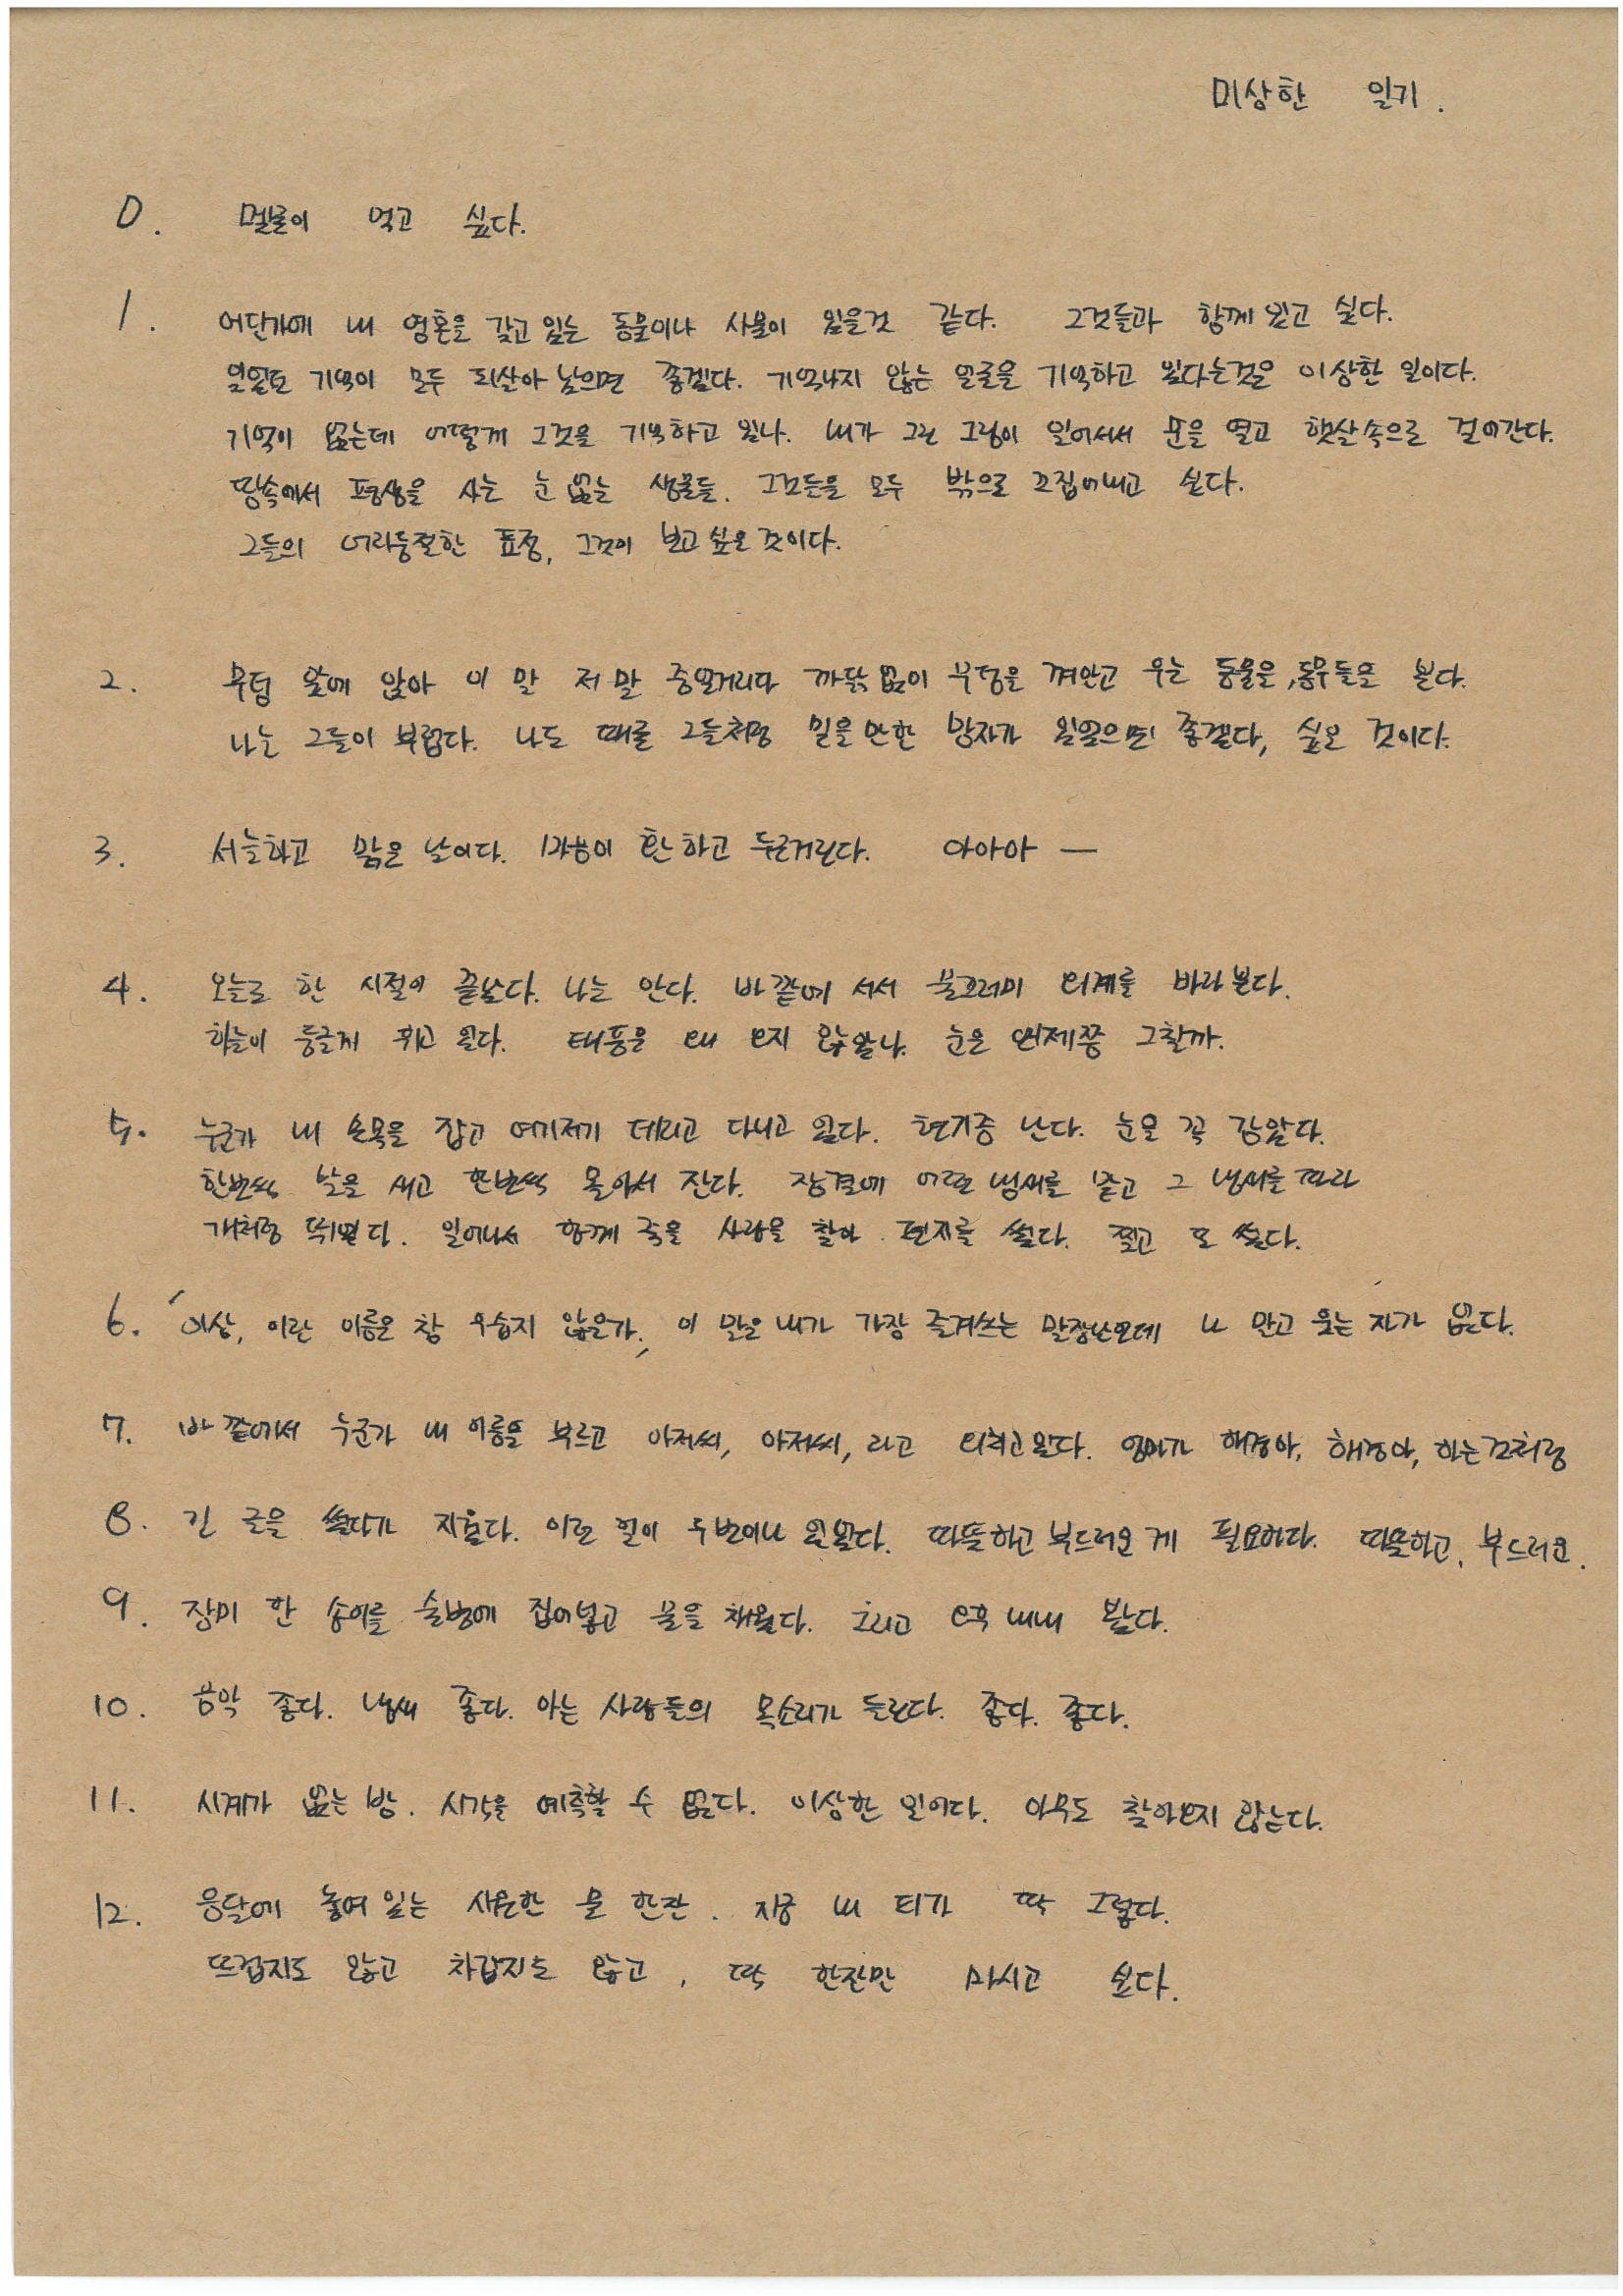 미상한 일기.
0. 멜론이 먹고 싶다.
1. 어딘가에 내 영혼을 갖고 있는 동물이나 사물이 있을것 같다. 그것들과 함께 있고 싶다.
잃었던 기억이 모두 되살아 났으면 좋겠다. 기억나지 않는 얼굴을 기억하고 있다는것은 이상한 일이다.
기억이 없는데 어떻게 그것을 기억하고 있나. 내가 그린 그림이 일어서서 문을 열고 햇살속으로 걸어간다.
땅속에서 평생을 사는 눈 없는 생물들. 그것들을 모두 밖으로 끄집어내고 싶다.
그들의 어리둥절한 표정, 그것이 보고싶은 것이다.
2. 무덤 앞에 앉아 이 말 저 말 중얼거리다 까닭 없이 무덤을 껴안고 우는 동물을, 동무들을 본다.
나는 그들이 부럽다. 나도 때로 그들처럼 믿을 만한 망자가 있었으면 좋겠다, 싶은 것이다.
3. 서늘하고 맑은 날이다. 마음이 환하고 두근거린다. 아아아 —
4. 오늘로 한 시절이 끝났다. 나는 안다. 바깥에 서서 물끄러미 외계를 바라본다.
하늘이 둥글게 휘고 있다. 태풍은 왜 오지 않았나. 눈은 언제쯤 그칠까.
5. 누군가 내 손목을 잡고 여기저기 데리고 다니고 있다. 현기증 난다. 눈을 꼭 감았다.
한번씩 날을 새고 한번씩 몰아서 잔다. 잠결에 어떤 냄새를 맡고 그 냄새를 따라
개처럼 뛰었다. 일어나서 함께 죽을 사람을 찾아 편지를 썼다. 찢고 또 썼다.
6. ‘이상, 이란 이름은 참 우습지 않은가, 이 말은 내가 가장 즐겨쓰는 말장난인데 나 말고 웃는 자가 없다.
7. 바깥에서 누군가 내 이름을 부르고 아저씨, 아저씨, 라고 외치고있다. 엄마가 해경아, 해경아, 하는것처럼
8. 긴 글을 썼다가 지웠다. 이런 일이 두번이나 있었다. 따뜻하고 부드러운 게 필요하다. 따뜻하고, 부드러운.
9. 장미 한 송이를 술병에 집어넣고 물을 채웠다. 그리고 오후 내내 봤다.
10. 음악 좋다. 냄새 좋다. 아는 사람들의 목소리가 들린다. 좋다. 좋다.
11. 시계가 없는 방. 시각을 예측할 수 없다. 이상한 일이다. 아무도 찾아오지 않는다.
12. 응달에 놓여있는 시원한 물 한잔. 지금 내 피가 딱 그렇다.
뜨겁지도 않고 차갑지도 않고, 딱 한잔만 마시고 싶다.